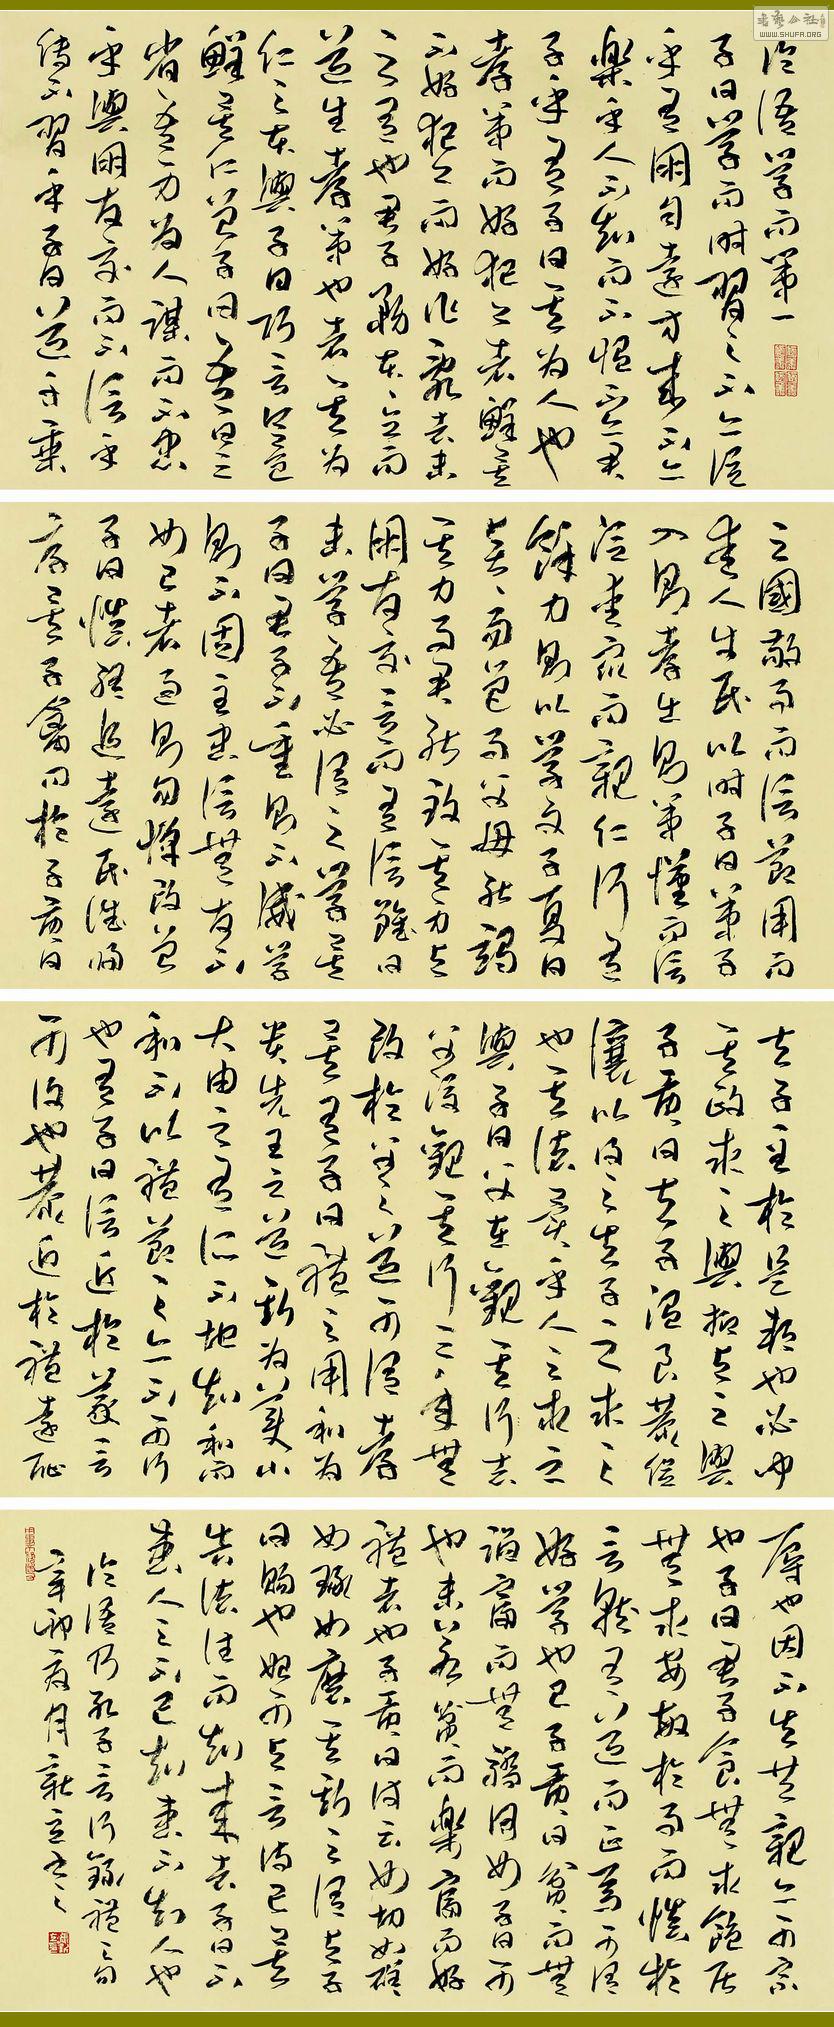 論語學而第一
子曰學而時習之不亦說
乎有朋自遠方來不亦
樂乎人不知而不慍不亦君
子乎有子曰其為人也
孝弟而好犯上者鮮矣
不好犯上而好作亂者未
之有也君子務本本立而
道生孝弟也者其為
仁之本與子曰巧言令色
鮮矣仁曾子曰吾日三
省吾身為人謀而不忠
乎與朋友交而不信乎
傳不習乎子曰道千乘
之國敬事而信節用而
愛人使民以時子曰弟子
入則孝出則弟謹而信
汎愛眾而親仁行有
餘力則以學文子夏曰
賢賢易色事父母能竭
其力事君能致其身與
朋友交言而有信雖曰
未學吾必謂之學矣
子曰君子不重則不威學
則不固主忠信無友不
如己者過則勿憚改曾
子曰慎終追遠民德歸
厚矣子禽問於子貢曰
夫子至於是邦也必聞
其政求之與抑與之與
子貢曰夫子溫良恭儉
讓以得之夫子之求之
也其諸異乎人之求之
與子曰父在觀其志
父沒觀其行三年無
改於父之道可謂孝
矣有子曰禮之用和為
貴先王之道斯為美小
大由之有所不行知和而
和不以禮節之亦不可行
也有子曰信近於義言
可復也恭近於禮遠恥
辱也因不失其親亦可宗
也子曰君子食無求飽居
無求安敏於事而慎於
言就有道而正焉可謂
好學也已子貢曰貧而無
諂富而無驕何如子曰可
也未若貧而樂富而好
禮者也子貢曰詩云如切如磋
如琢如磨其斯之謂與子
曰賜也始可與言詩已矣
告諸往而知來者子曰不
患人之不己知患不知人也
論語乃孔子言行錄
辛卯夏月新立書之
書藝公社
WWW.SHUFA.ORG